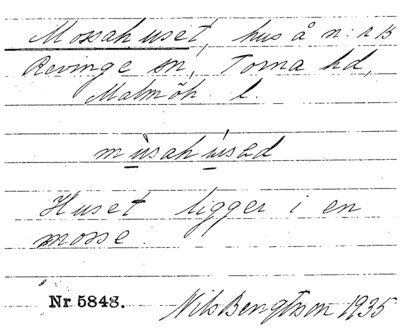 Mossahuset, hus å n:r 13
Revinge sn, Torna hd,
Malmöh. l.
mùsahúsəd
Huset ligger i en
mosse.
Nr. 5848. Nils Bengtson 1935